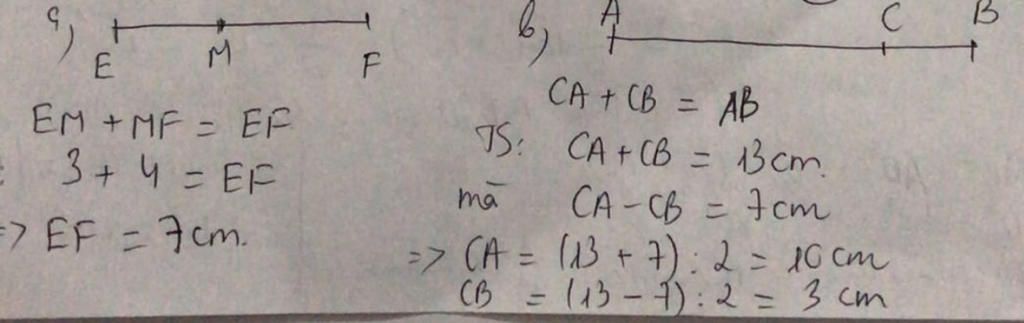 a)
E M F
EM + MF = EF
3 + 4 = EF
=> EF = 7cm.
b)
A C B
CA + CB = AB
TS: CA + CB = 13cm.
mà CA - CB = 7cm
=> CA = (13 + 7) : 2 = 10cm
CB = (13 - 7) : 2 = 3 cm